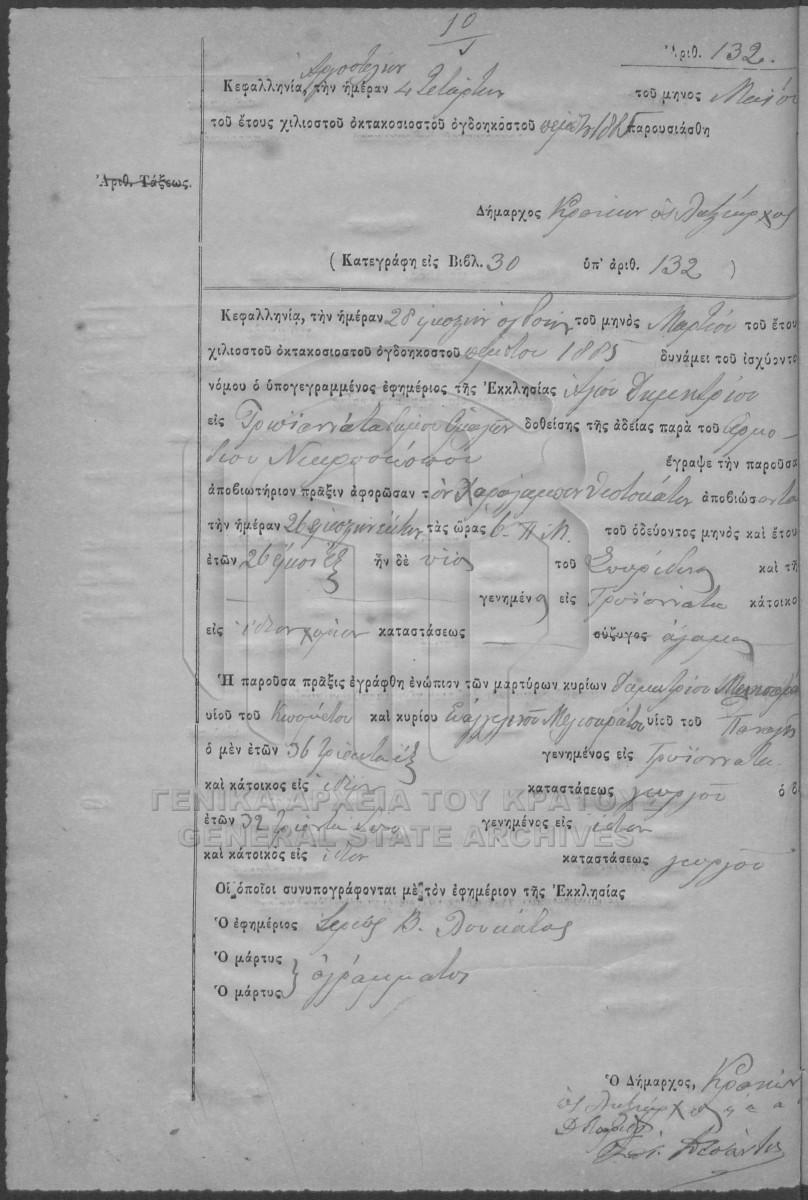 10
Ἀριθ. 132.
Ἀργοστόλιον
Κεφαλληνία, τὴν ἡμέραν 4 Τετάρτην τοῦ μηνος Μαΐου
τοῦ ἔτους χιλιοστοῦ ὀκτακοσιοστοῦ ὀγδοηκοστοῦ πέμπτου 1885 παρουσιάσθη
Ἀριθ. Τάξεως.
Δήμαρχος Κρανίων ὡς Ληξίαρχος
( Κατεγράφη εἰς Βιβλ. 30 ὑπ' ἀριθ. 132 )
Κεφαλληνία, τὴν ἡμέραν 28 εἰκοστὴν ὀγδόην τοῦ μηνὸς Μαρτίου τοῦ ἔτου
χιλιοστοῦ ὀκτακοσιοστοῦ ὀγδοηκοστοῦ πέμπτου 1885 δυνάμει τοῦ ἰσχύοντο
νόμου ὁ ὑπογεγραμμένος ἐφημέριος τῆς Ἐκκλησίας Ἁγίου Δημητρίου
εἰς Τρωϊαννάτα δήμου Ὁμαλῶν δοθείσης τῆς ἀδείας παρὰ τοῦ ἁρμο-
δίου Νεκροσκόπου ἔγραψε τὴν παροῦσα
ἀποβιωτήριον πρᾶξιν ἀφορῶσαν τὸν Χαράλαμπον Θεοτοκάτον ἀποβιώσαντα
τὴν ἡμέραν 26 εἰκοστὴν ἕκτην τὰς ὥρας 6 Π.Μ. τοῦ ὁδεύοντος μηνὸς καὶ ἔτου
ἐτῶν 26 εἴκοσι ἓξ ἦν δὲ υἱὸς τοῦ Σπυρίδωνος καὶ τῆ
γενημένος εἰς Τρωϊαννάτα κάτοικο
εἰς ἴδιον χωρίον καταστάσεως σύζυγος ἄγαμος
Ἡ παροῦσα πρᾶξις ἐγράφθη ἐνώπιον τῶν μαρτύρων κυρίων Δημητρίου
υἱοῦ τοῦ καὶ κυρίου Εὐαγγελινοῦ υἱοῦ τοῦ Παναγῆ
ὁ μὲν ἐτῶν 36 τριάκοντα ἓξ γενημένος εἰς Τρωϊαννάτα
καὶ κάτοικος εἰς ἴδιον καταστάσεως γεωργοῦ ὁ δ
ΓΕΝΙΚΑ ΑΡΧΕΙΑ ΤΟΥ ΚΡΑΤΟΥΣ
ἐτῶν 32 τριάντα δύο γενημένος εἰς ἴδιον
GENERAL STATE ARCHIVES
καὶ κάτοικος εἰς ἴδιον καταστάσεως γεωργοῦ
Οἱ ὁποῖοι συνυπογράφονται μὲ τὸν ἐφημέριον τῆς Ἐκκλησίας
Ὁ ἐφημέριος Ἱερεὺς Β. Λουκάτος
Ὁ μάρτυς
Ὁ μάρτυς } ἀγράμματοι
Ὁ Δήμαρχος, Κρανίων
ὡς Ληξίαρχος